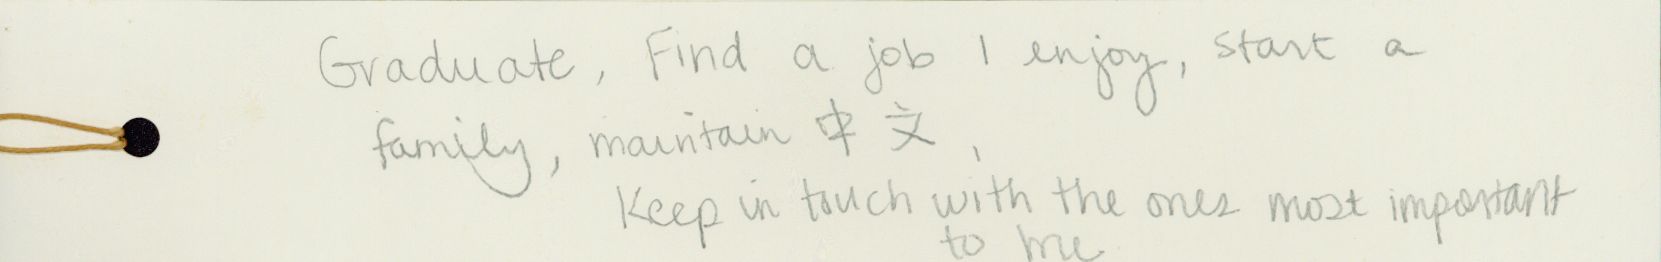 Graduate, Find a job I enjoy, start a
family, maintain 中文,
Keep in touch with the ones most important
to me